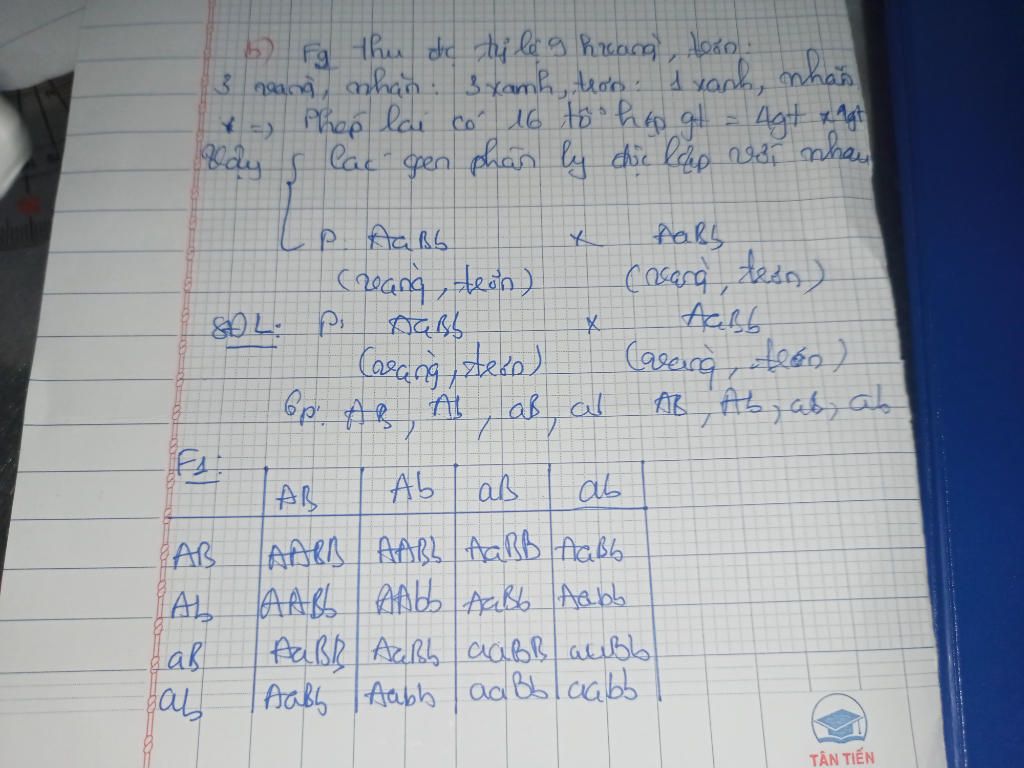 b) F2 thu đc tỷ lệ 9 vàng, trơn:
3 vàng, nhăn: 3 xanh, trơn: 1 xanh, nhăn
* => Phép lai có 16 tổ hợp gt = 4gt x 4gt
Vậy { Các gen phân ly độc lập với nhau
P: AaBb x AaBb
(vàng, trơn) (vàng, trơn)
SĐL: P: AaBb x AaBb
(vàng, trơn) (vàng, trơn)
Gp: AB, Ab, aB, ab AB, Ab, ab, ab
F1:
AB Ab aB ab
AB AABB AABb AaBB AaBb
Ab AABb AAbb AaBb Aabb
aB AaBB AaBb aaBB aaBb
ab AaBb Aabb aaBb aabb
TÂN TIẾN